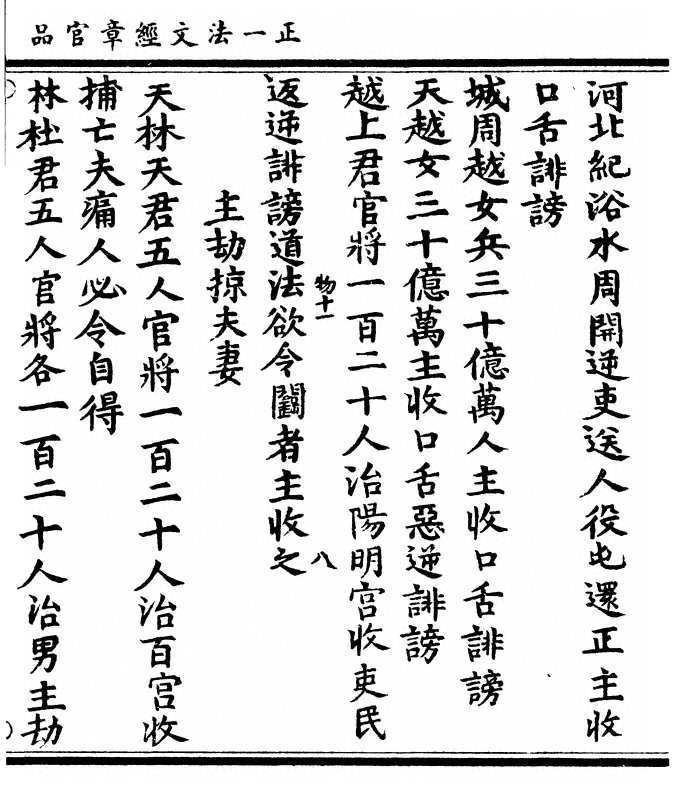 正一法文經章官品
河北紀浴水周開逆吏送人役屯還正主收
口舌誹謗
城周越女兵三十億萬人主收口舌誹謗
天越女三十億萬主收口舌惡逆誹謗
越上君官將一百二十人治陽明宮收吏民
物十一 八
返逆誹謗道法欲令鬬者主收之
主劫掠夫妻
天林天君五人官將一百二十人治百宮收
捕亡夫痛人必令自得
林杜君五人官將各一百二十人治男主劫